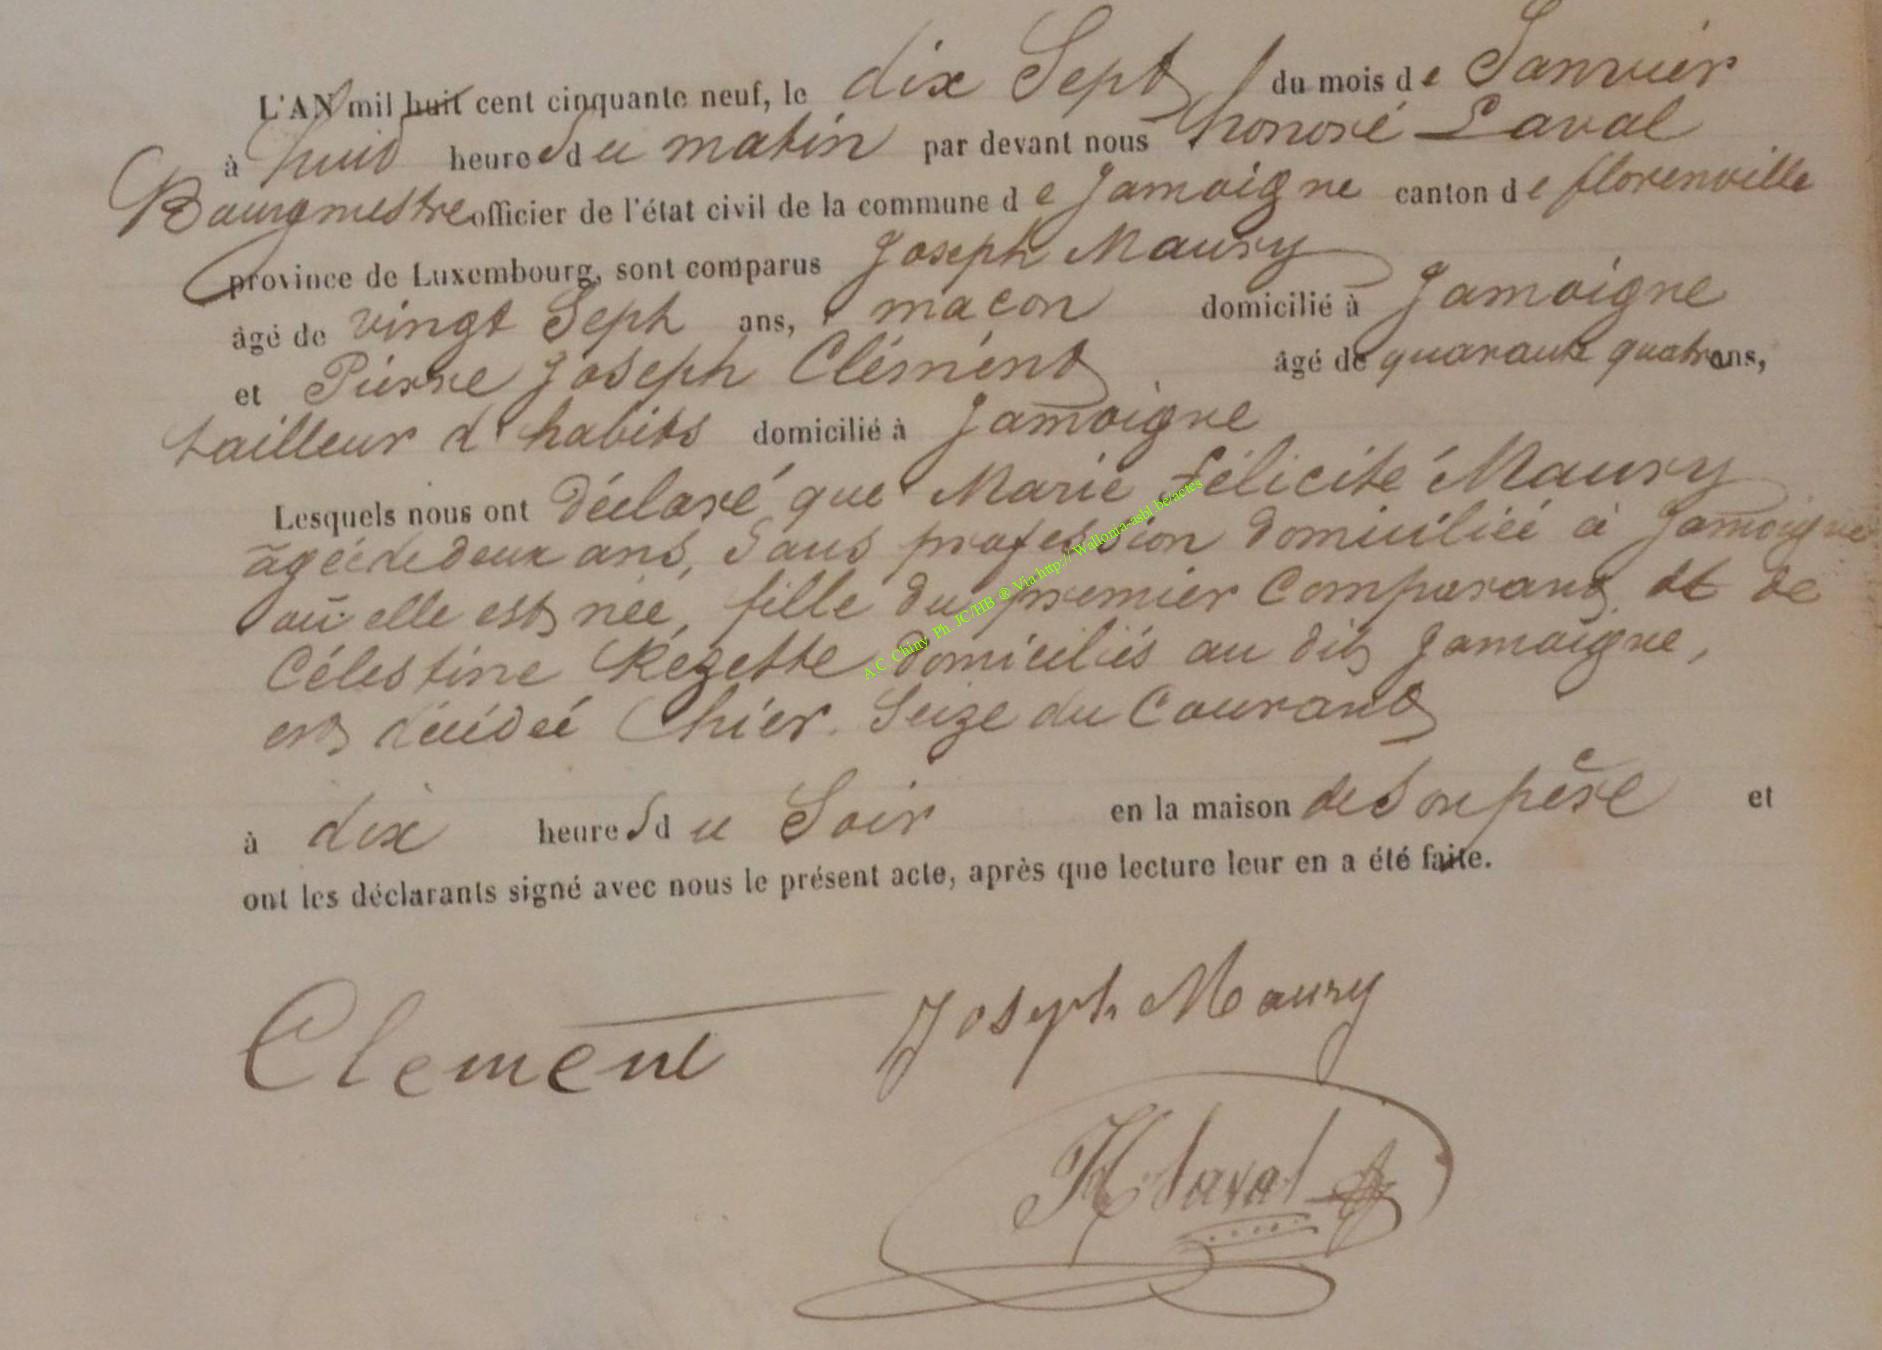 L'AN mil huit cent cinquante neuf, le dix Sept du mois de Janvier
à huit heures du matin par devant nous honoré Laval
Bourgmestre officier de l'état civil de la commune de Jamoigne canton de florenville
province de Luxembourg, sont comparus Joseph Maury
âgé de vingt Sept ans, macon domicilié à Jamoigne
et Pierre Joseph Clément âgé de quarante quatre ans,
tailleur d'habits domicilié à Jamoigne
Lesquels nous ont déclaré que Marie félicité Maury
âgée de deux ans, Sans profession domiciliée à Jamoigne
où elle est née, fille du premier Comparant et de
Célestine Rezette domiciliés au dit Jamoigne,
est décidée hier Seize du Courant
à dix heures du Soir en la maison de Son père et
ont les déclarants signé avec nous le présent acte, après que lecture leur en a été faite.
Clement Joseph Maury
H Laval
A C Chiny Ph. JC/HB ® Via http://Wallonia-asbl.be/actes